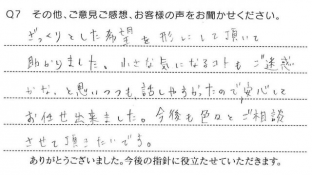 Q7 その他、ご意見ご感想、お客様の声をお聞かせください。
ざっくりとした希望を形にして頂いて
助かりました。小さな気になるコトもご迷惑
かな、と思いつつも、話しやすかったので安心して
お任せ出来ました。今後も色々とご相談
させて頂きたいです。
ありがとうございました。今後の指針に役立たせていただきます。